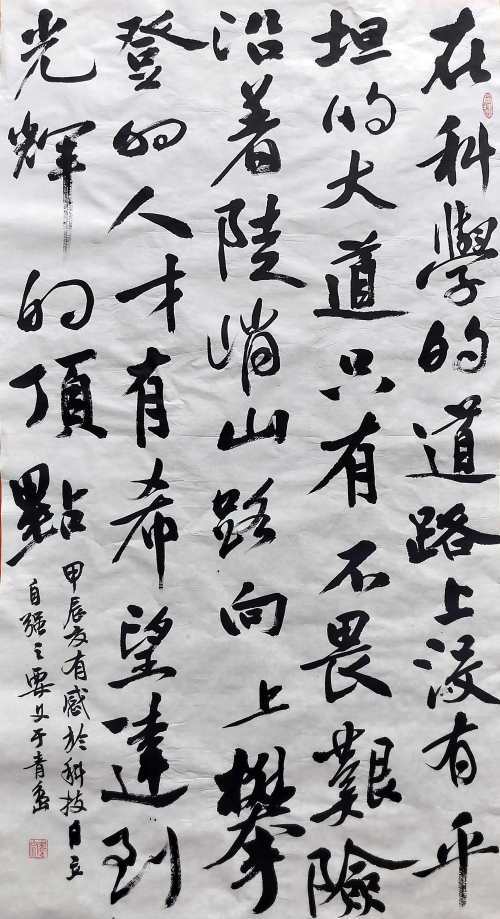 在科學的道路上没有平
坦的大道只有不畏艱險
沿着陡峭山路向上攀
登的人才有希望達到
光輝的頂點
甲辰有感於科技自立
自强之要义于青島